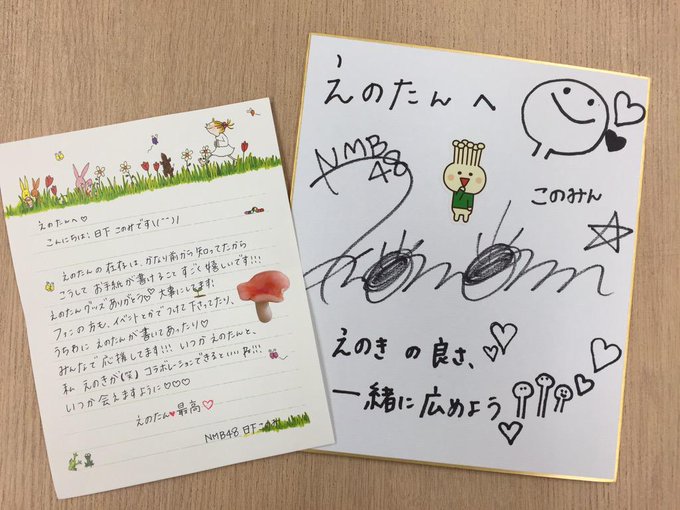 えのたんへ♡
こんにちは！日下このみです\(^^)/
えのたんの存在は、かなり前から知ってたから
こうしてお手紙が書けること すごく嬉しいです!!!
えのたんグッズありがとう♡大事にします!
ファンの方も、イベントとかでつけて下さってたり、
うちわに えのたんが書いてあったり♡
みんなで応援してます!!! いつか えのたんと、
私 えのきが(笑) コラボレーションできるといいな!!!
いつか会えますように♡♡♡
えのたん♥最高♡
NMB48 日下このみ
えのたんへ
NMB
48
このみん
えのきの良さ、
一緒に広めよう